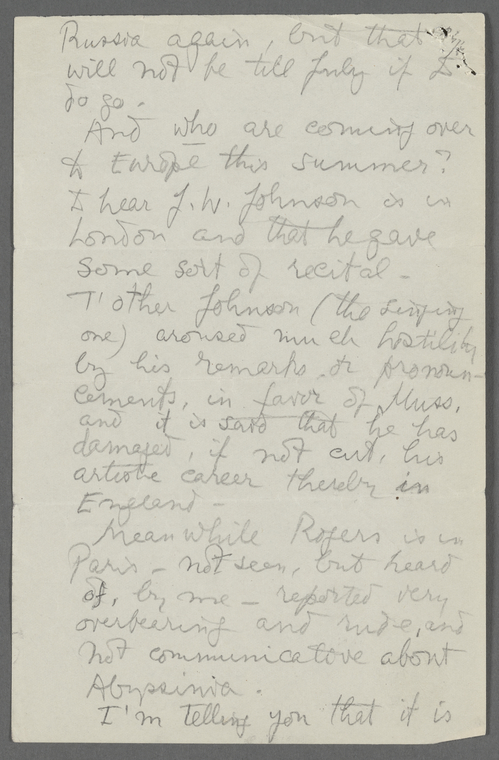 Russia again, but that
will not be till July if I
do go.
And who are coming over
to Europe this summer?
I hear J. W. Johnson is in
London and that he gave
some sort of recital –
T'other Johnson (the singing
one) aroused much hostility
by his remarks or pronoun-
cements, in favor of Muss,
and it is said that he has
damaged, if not cut, his
artistic career thereby in
England –
Meanwhile Rogers is in
Paris – not seen, but heard
of, by me – reported very
overbearing and rude, and
not communicative about
Abyssinia.
I'm telling you that it is